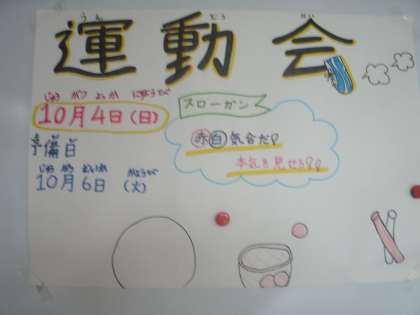 うんどうかい
運動会
じゅうがつよっかにちようび
10月4日(日)
スローガン
赤白気合だ!?
本気を見せろ!?
予備日
10月6日(火)